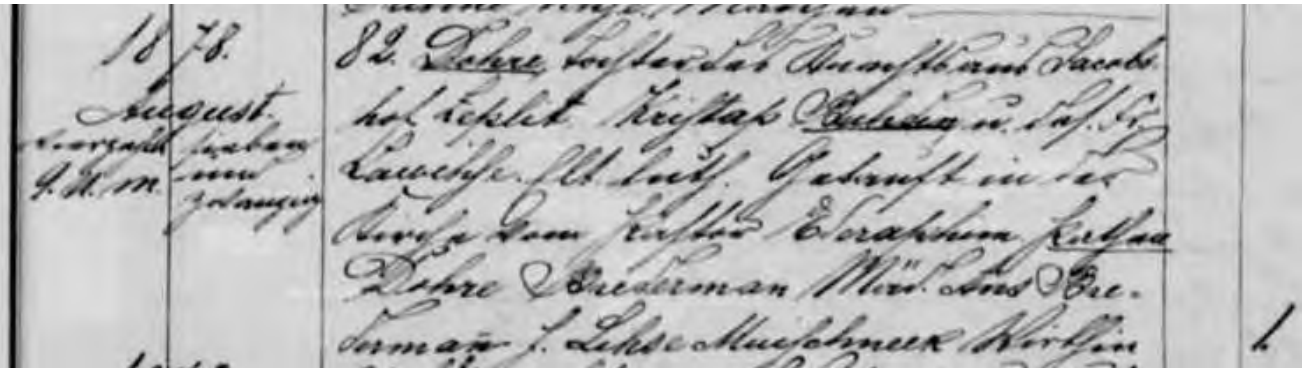 1878.
August.
vierzehn
9. U. m.
sieben
und
zwanzig
82. Dohre, Tochter des Knechts aus Jacobs-
hof Leplit Kristap u. des. Fr.
Lawihse. Elt. luth. Getauft in der
Kirche vom Pastor E Seraphim
Dohre Breederman Mäd. Ans Bree-
derman f. Lihse Muischneek Wirthin
1.